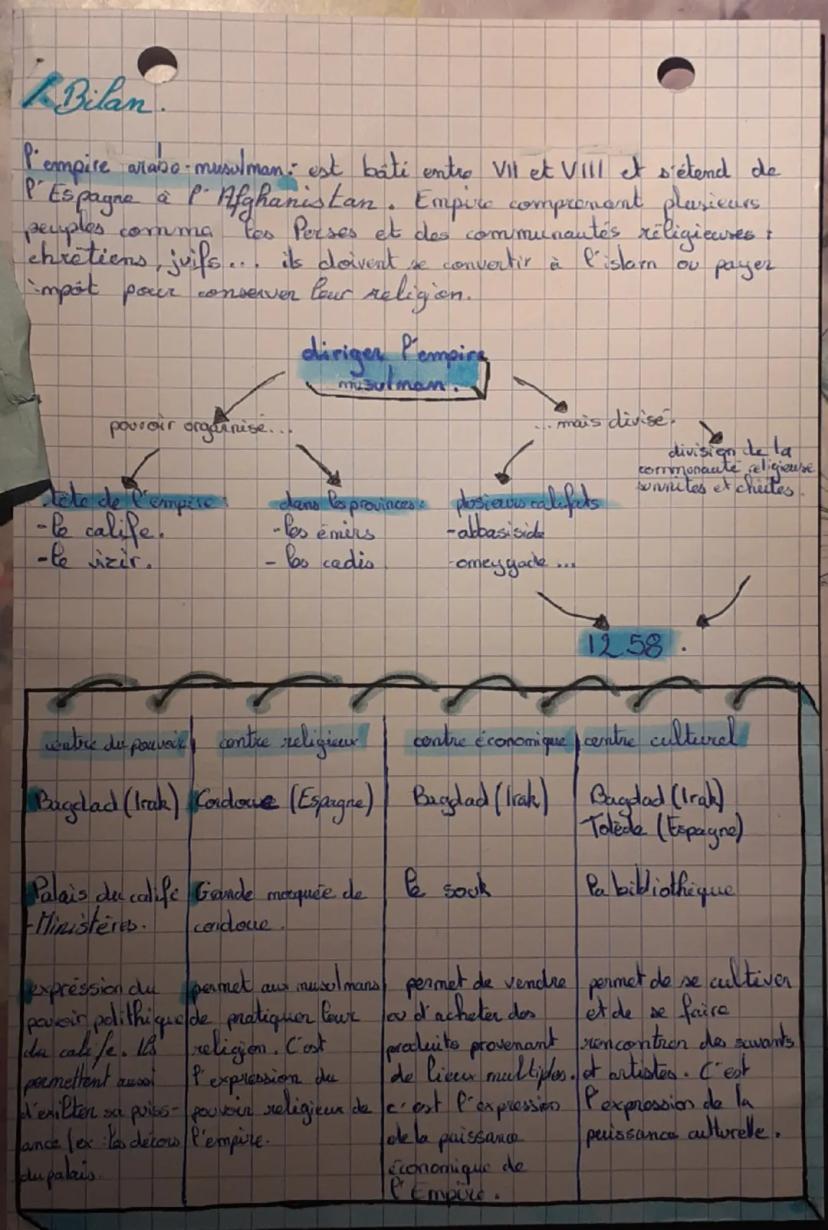 1. Bilan.
l'empire arabo-musulman: est bâti entre VII et VIII et s'étend de
l'Espagne à l'Afghanistan. Empire comprenant plusieurs
peuples comma les Perses et des communautés réligieures :
chrétiens, juifs... ils doivent se convertir à l'islam ou payer
impôt pour conserver leur religion.
diriger l'empire
musulman.
pouvoir organisé...
...mais divisé.
division de la
communauté religieuse
sunnites et chiites.
tête de l'empire:
- le calife.
- le vizir.
dans les provinces:
- les émirs
- les cadis
plusieurs califats
- abbasside
- omeyyade ...
1258.
centre du pouvoir
centre religieux
centre économique
centre culturel
Bagdad (Irak)
Cordoue (Espagne)
Bagdad (Irak)
Bagdad (Irak)
Tolède (Espagne)
Palais du calife
- Ministères.
Grande mosquée de
cordoue.
le souk
la bibliothèque
expréssion du
pouvoir polithique
du calife. Ils
permettent aussi
d'exilter sa puiss-
ance (ex: les décors
du palais.
permet aux musulmans
de pratiquer leur
religion. C'est
l'expression du
pouvoir religieux de
l'empire.
permet de vendre
ou d'acheter des
produits provenant
de lieux multiples.
c'est l'expression
de la puissance
économique de
l'Empire.
permet de se cultiver
et de se faire
rencontrer des savants
et artistes. C'est
l'expression de la
puissance culturelle.